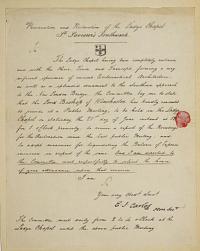 Preservation and Restoration of the Ladye Chapel
St. Saviour's Southwark
Sir
The Ladye Chapel having been completely restored
and with the Choir, Tower and Transepts forming a very
specimen of ancient Ecclesiastical Architecture
as well as a splendid ornament to the Southern approach
to the New London Bridge, the Committee beg me to state
that the Lord Bishop of Winchester has kindly consented
to preside at a Public Meeting, to be held in the Ladye
Chapel on Saturday the 22nd day of June instant at
for 1 o'Clock precisely, to receive a report of the Proceedings
for the Restoration since the last public Meeting and
to adopt measures for liquidating the Balance of Expences
incurred in respect of the same. And I am directed by
the Committee most respectfully to solicit the honor
attendance upon that occasion
I am Sir
Your very Obedt Servt
E. I. Carlos Hony Sec
The Committee meet on 2 to 4 o'Clock at the
Ladye Chapel until the above public Meeting